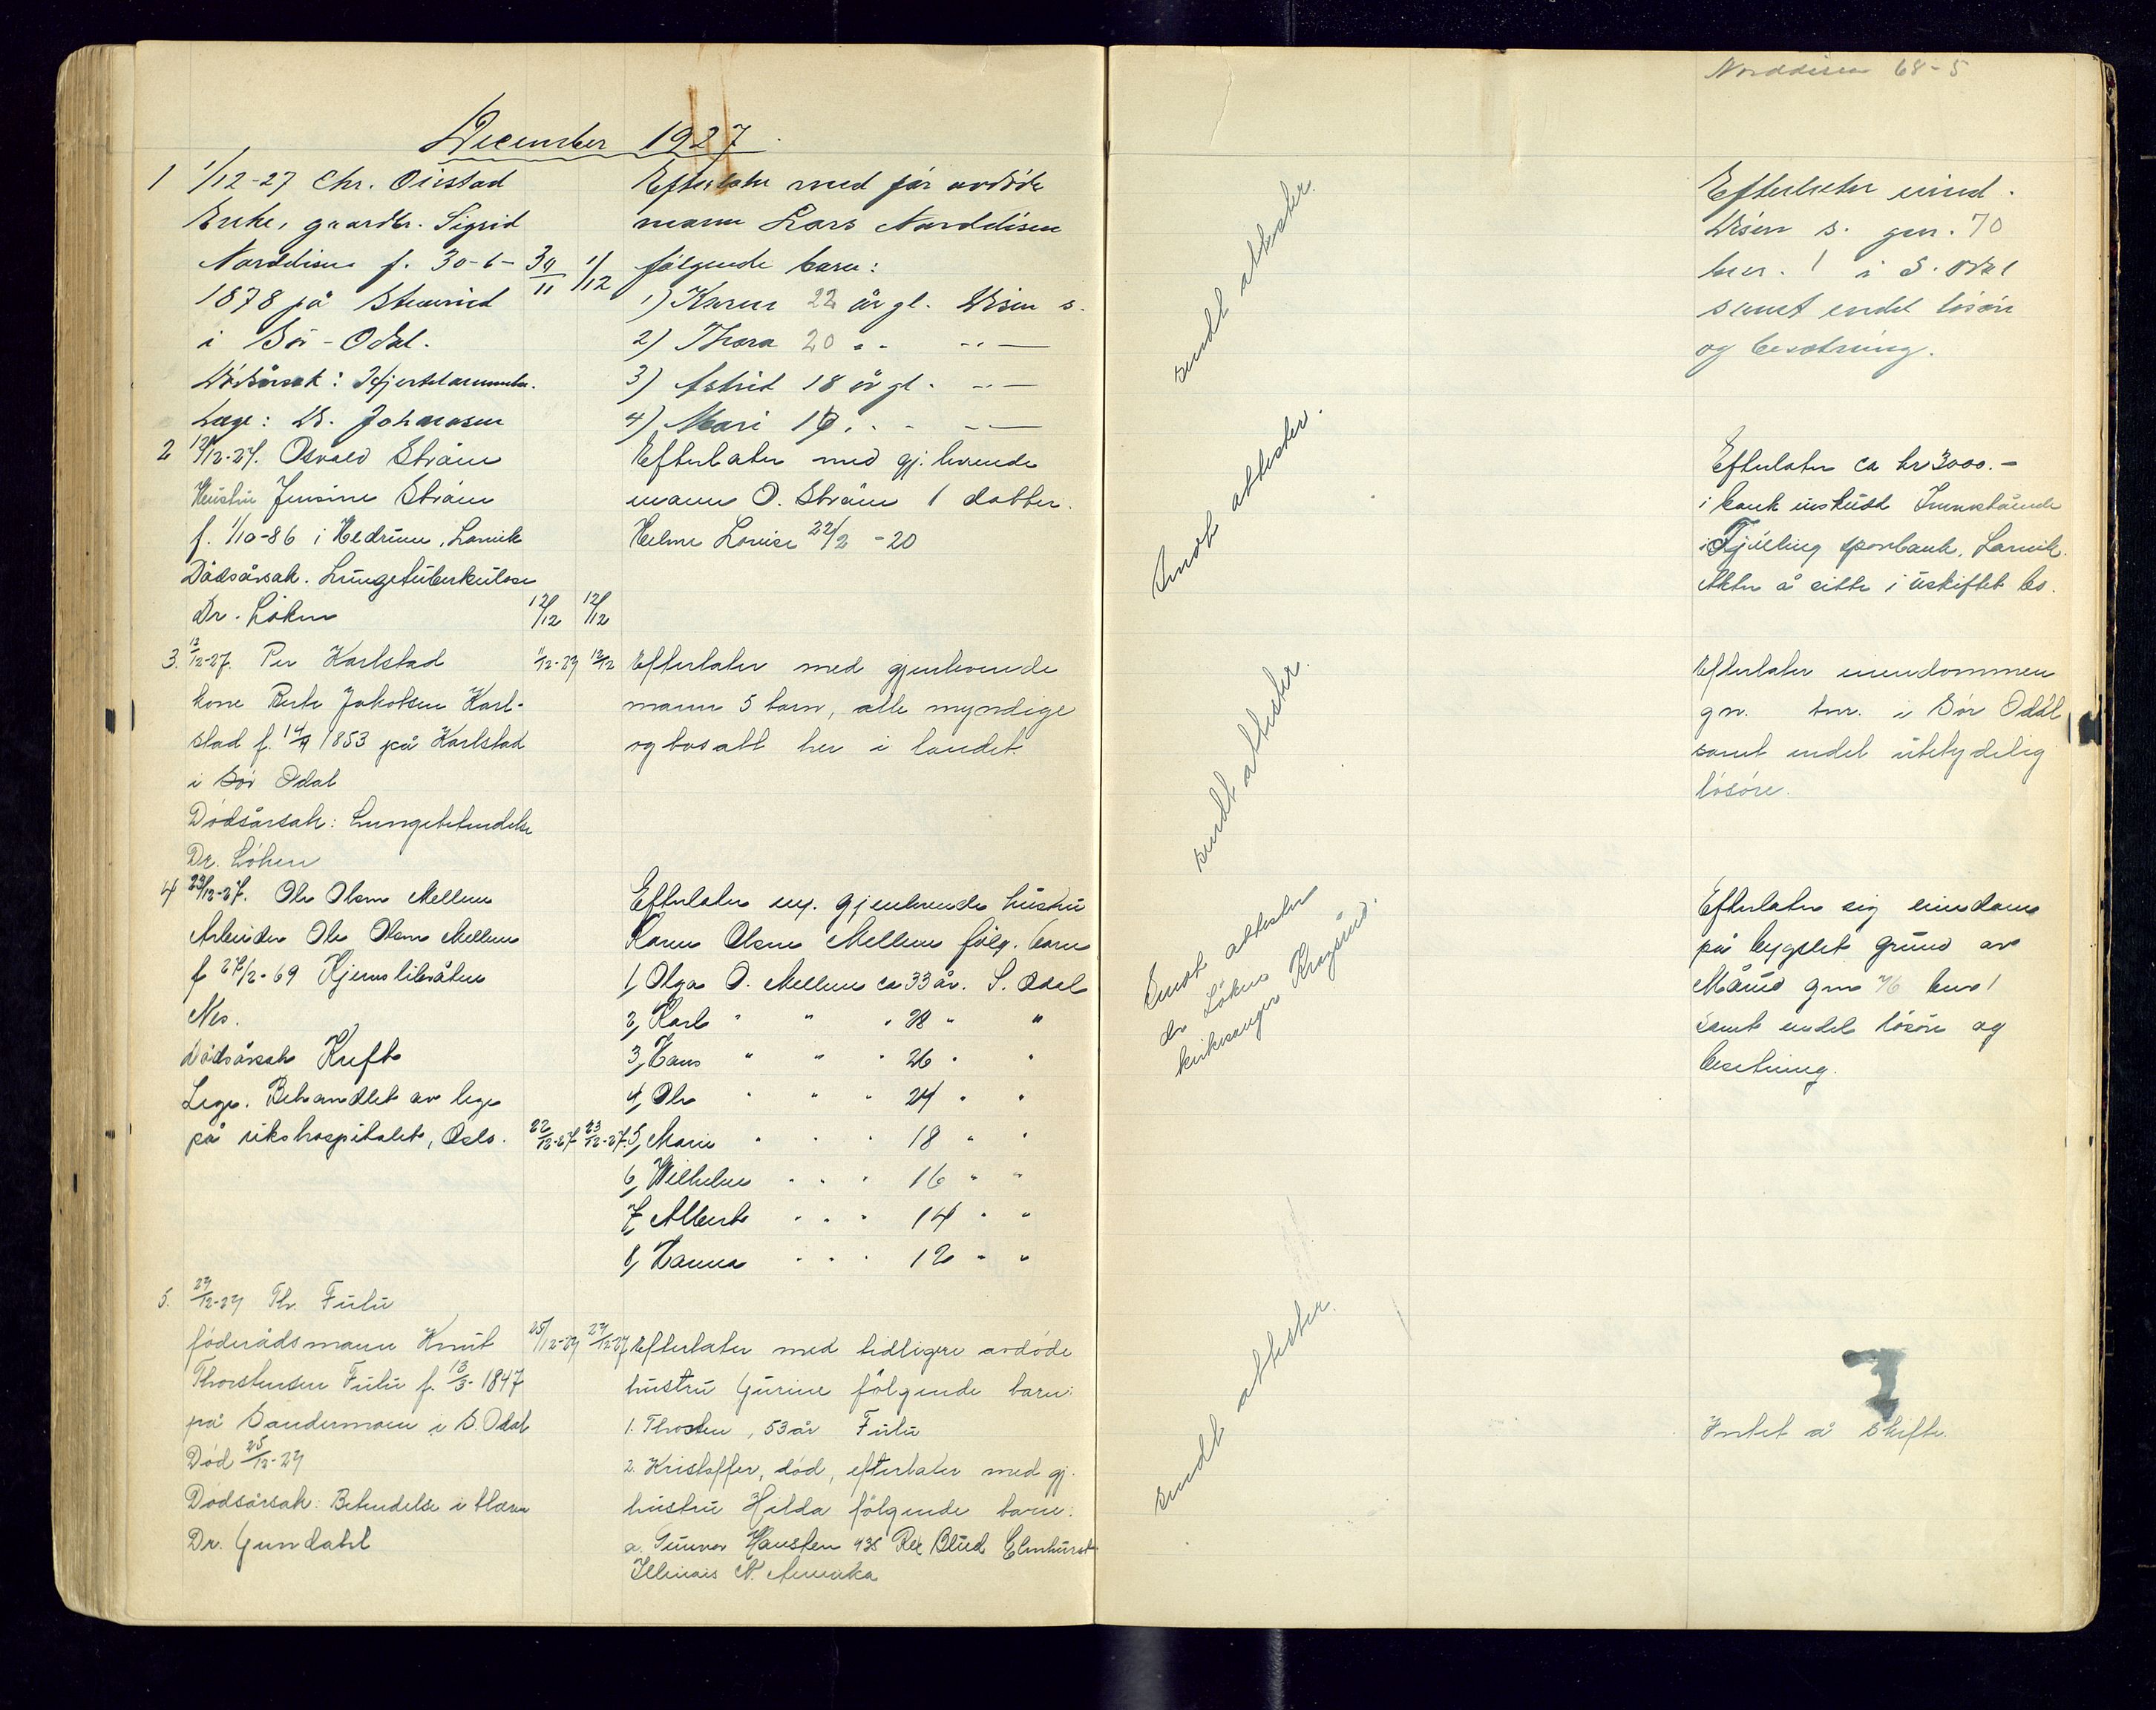 Norddisen 68-5
December 1927
1 1/12-27 Chr. Oustad
Enke, gaardbr. Sigrid
Norddisen f. 30-6- 30/11 1/12
1878 på
i Sör-Odal.
Dödsårsak: Hjertelammelse.
Læge: Dr. Johansen
Efterlater med før avdöde
mann Lars Norddisen
følgende barn:
1) Karen 22 år gl. Disen s.
2) Thora 20 " " -"-
3) Astrid 18 år gl. -"-
4) Mari 16 " " -"-
sendt attester.
Efterlater eiend.
Disen s. gnr. 70
bnr. 1 i S. Odal
samt endel løsøre
og besetning.
2 12/12-27. Osvald Strøm
Hustru Jensine Strøm
f. 1/10-86 i Hedrum, Larvik
Dødsårsak. Lungetuberkulose
Dr. Löken 12/12 12/12
Efterlater med gj. levende
mann O. Strøm 1 datter.
Helma Lovise 22/2 -20
Sendt attester.
Efterlater ca kr 3000.-
i bank innskudd Innestående
i Tjölling sparbank, Larvik.
Akter å sitte i uskiftet bo.
3. 12/12-27. Per Karlstad 11/12-27 12/12
kone Berte Jakobsen Karl-
stad f. 14/9 1853 på Karlstad
i Sör Odal
Dödsårsak: Lungebetendelse
Dr. Löken
Efterlater med gjenlevende
mann 5 barn, alle myndige
og bosatt her i landet.
sendt attester.
Efterlater eiendommen
gn. bnr. i Sør Odal
samt endel ubetydelig
lösöre.
4 23/12-27. Ole Olsen Mellem
Arbeider Ole Olsen Mellem
f 27/2-69
Nes.
Dødsårsak Kreft
Lege. Behandlet av lege
på rikshospitalet, Oslo. 22/12-27 23/12-27
Efterlater sig gjenlevende hustru
Karen Olsen Mellem følg. barn
1, Olga O. Mellem ca 33 år. S. Odal
2, Karl " " " 28 " "
3, Hans " " " 26 " "
4, Ole " " " 24 " "
5, Marie " " " 18 " "
6, Wilhelm " " " 16 " "
7, Albert " " " 14 " "
8, Hanna " " " 12 " "
Sendt attester
dr Løken
kirkesanger
Efterlater sig eiendom
på bygslet grund av
gnr 76 bnr 1
samt endel løsøre og
besetning.
5. 27/12-27 Th. Fulu
föderådsmann Knut 25/12-27 27/12-27
Thorstensen Fulu f. 13/3-1847
på Sandermoen i S. Odal
Död 25/12-27
Dödsårsak: Betendelse i blæren
Dr. Gundahl
Efterlater med tidligere avdöde
hustru Gurine fölgende barn:
1. Thorsten, 53 år Fulu
2. Kristoffer, död, efterlater med gj.
hustru Hilda fölgende barn:
a. Gunnar Hansten 435 Rex Blvd Elmhurst
Illinois N. Amerika
sendt attester.
7
Intet å skifte.